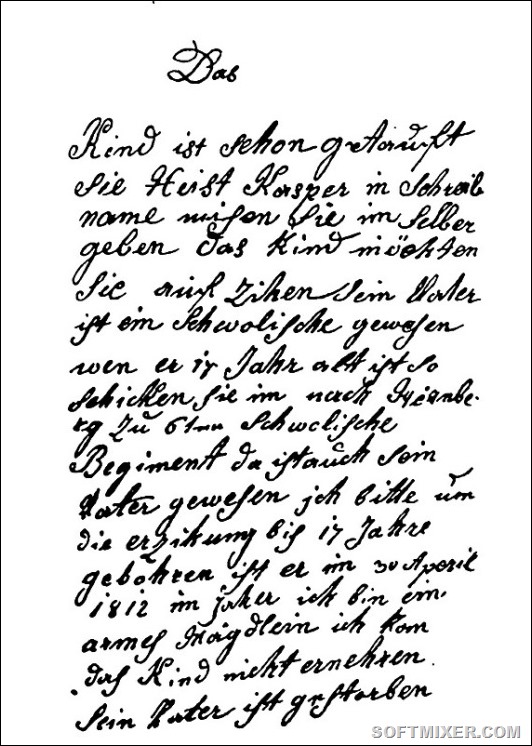 Das
Kind ist schon getauft
Sie Heist Kasper in Schreib
name misen Sie im Selber
geben das Kind möchten
Sie auf Zihen Sein Vater
ist ein Schwolische gewesen
wen er 17 Jahr alt ist so
schicken Sie im nach Nirnbe-
rg Zu 6ten Schwolische
Begiment da ist auch sein
Vater gewesen ich bitte um
die erzikung bis 17 Jahre
gebohren ist er im 30 Aperil
1812 im Jaher ich bin ein
armes Mägdlein ich kan
das Kind nicht ernehren
Sein Vater ist gestorben
SOFTMIXER.COM